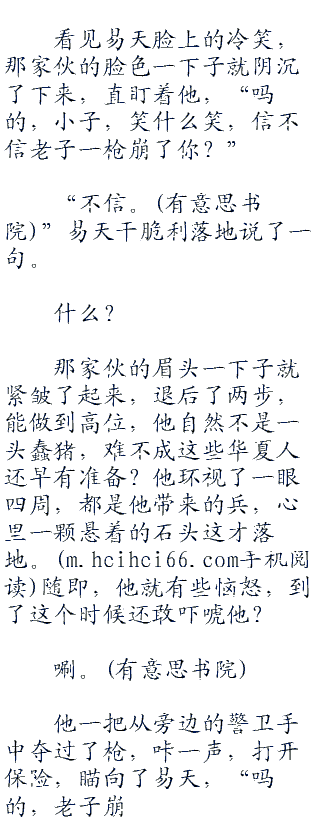 看见易天脸上的冷笑，
那家伙的脸色一下子就阴沉
了下来，直盯着他，“吗
的，小子，笑什么笑，信不
信老子一枪崩了你？”
“不信。(有意思书
院)”易天干脆利落地说了一
句。
什么？
那家伙的眉头一下子就
紧皱了起来，退后了两步，
能做到高位，他自然不是一
头蠢猪，难不成这些华夏人
还早有准备？他环视了一眼
四周，都是他带来的兵，心
里一颗悬着的石头这才落
地。(m.hcihci66.com手机阅
读)随即，他就有些恼怒，到
了这个时候还敢吓唬他？
唰。(有意思书院)
他一把从旁边的警卫手
中夺过了枪，咔一声，打开
保险，瞄向了易天，“吗
的，老子崩